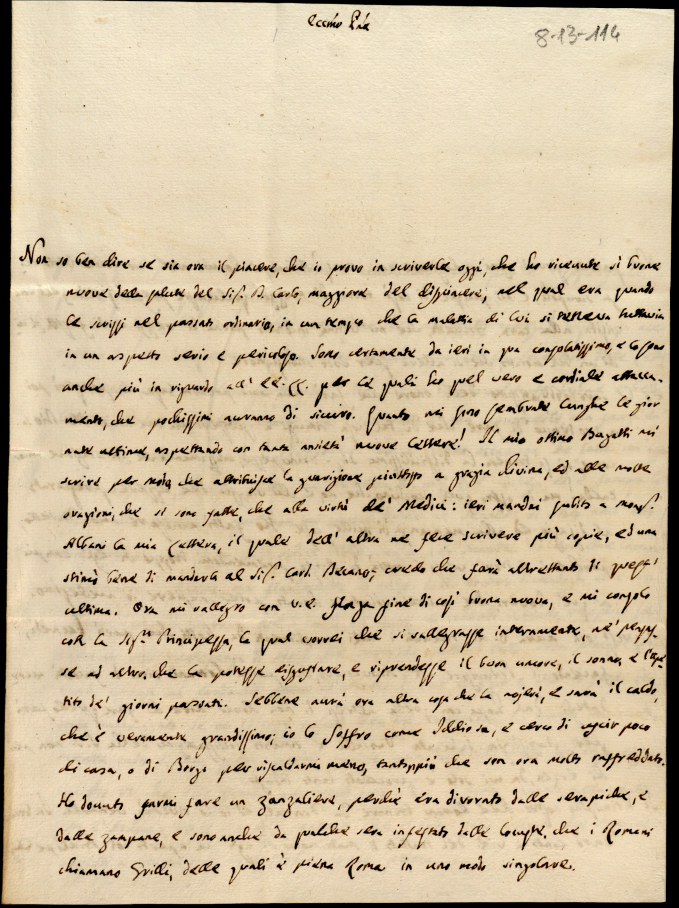 8-13-114
Non so ben dire se sia ora il piacere, che io provo in scriverle oggi, che ho ricevute sì buone
nuove della salute del Sig. D. Carlo, maggiore del dispiacere, nel qual era quando
le scrissi nel passato ordinario, in un tempo che la malattia di Lui si teneva tuttavia
in un aspetto serio e pericoloso. Sono certamente da ieri in qua consolatissimo, e lo sono
anche più in riguardo all' EE. per le quali ho quel vero e cordiale attacca-
mento, che pochissimi avranno di sicuro. Quanto mi sono sembrate lunghe le gior
nate ultime, aspettando con tanta ansietà nuove lettere! Il mio ottimo Bugatti mi
scrive per modo, che attribuisce la guarigione piuttosto a grazia divina, ed alle molte
orazioni, che si sono fatte, che alla virtù de' Medici: ieri mandai subito a Mons.
Albani la mia lettera, il quale dell' altra ne fece scrivere più copie, ed una
stimò bene di mandarla al Sig. Card. Decano; credo che farà altrettanto di quest'
ultima. Ora mi rallegro con V.E. senza fine di così buona nuova, e mi consolo
con la Sig.ra Principessa, la qual vorrei che si rallegrasse internamente, né pensas-
se ad altro, che la potesse disgustare, e riprendesse il buon umore, il sonno, e l'appe-
tito de' giorni passati. Sebbene avrà ora altra cosa che la molesti, e sarà il caldo,
che è veramente grandissimo; io lo soffro come Iddio sa, e cerco di uscir poco
di casa, o di Borgo per riscaldarmi meno, tantoppiù che son ora molto raffreddato.
Ho dovuto farmi fare un zanzaliere, perchè era divorato dalle serapiche, e
dalle zampane, e sono anche da qualche sera infestato dalle locuste, che i Romani
chiamano Grilli, delle quali è piena Roma in un modo singolare.